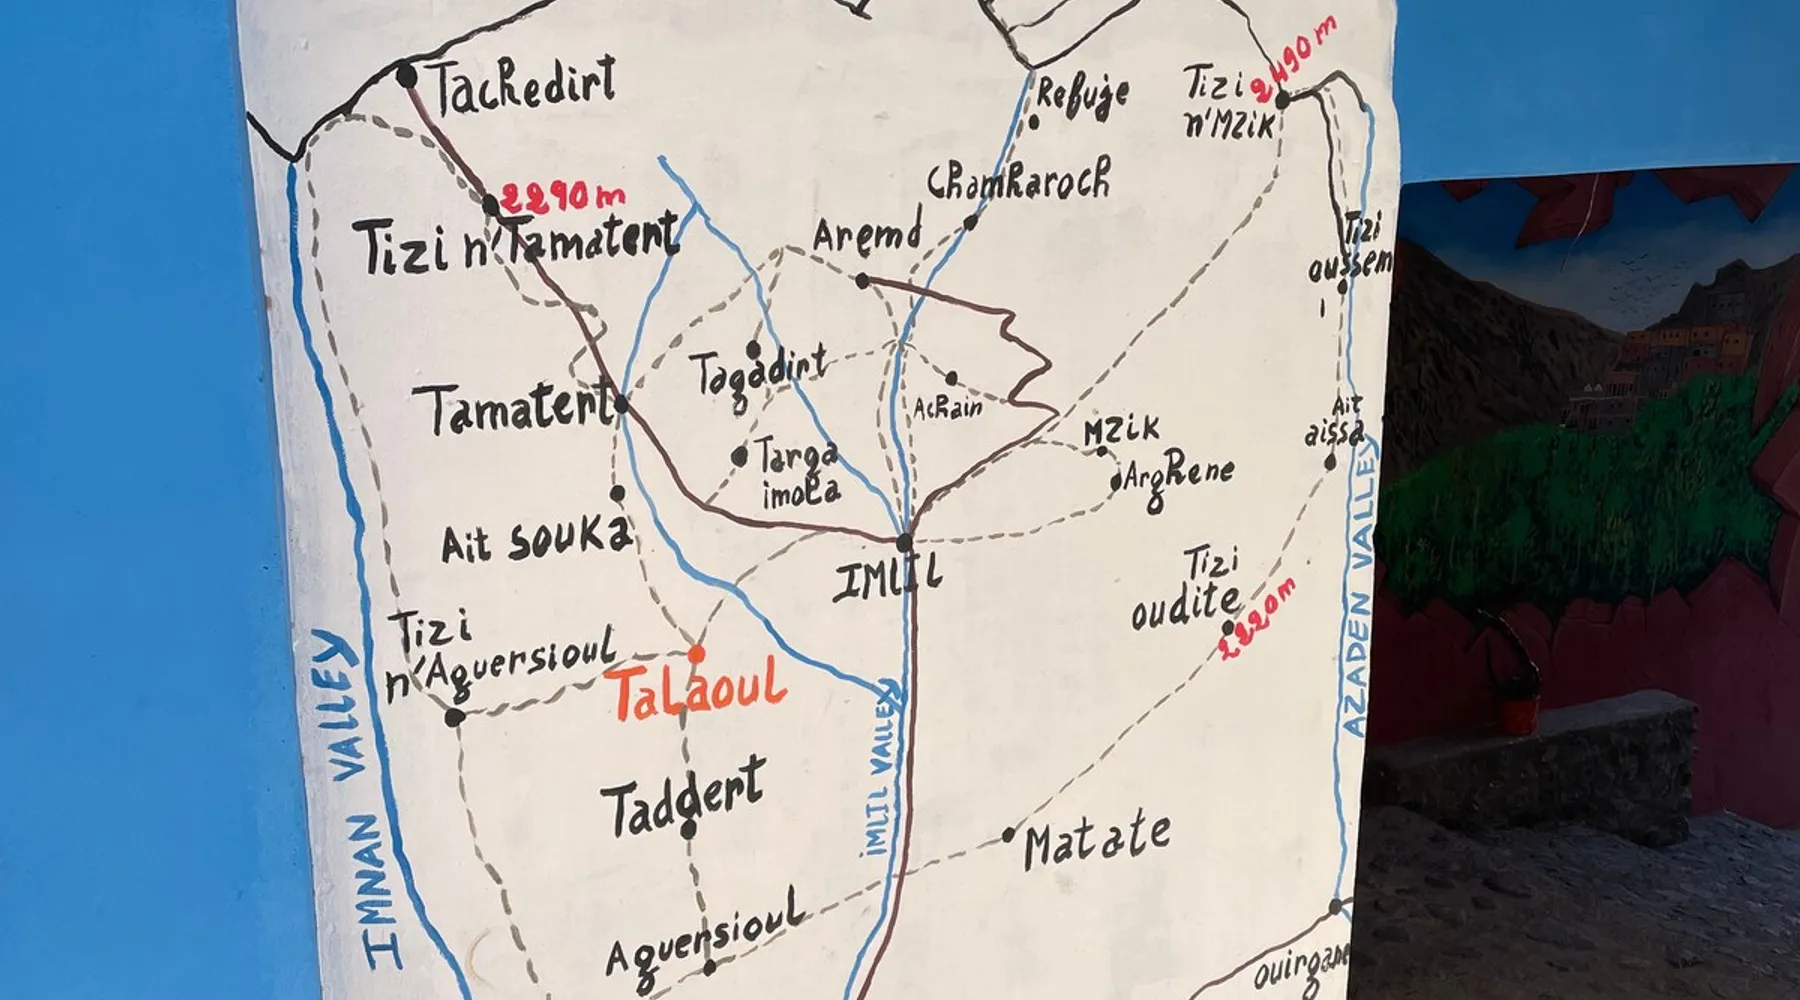 Tachedirt
2290 m
Tizi n'Tamatert
Refuje
Tizi
n'MZik
2490 m
ChamRaroch
Aremd
Tizi
oussem
Tamatert
Tagadirt
AcRain
Targa
imoLa
MZiK
ArgRene
Ait
aissa
Ait SOUKa
IMLIL
Tizi
oudite
2220m
Tizi
n'Aguersioul
TaLaouL
Taddert
Matate
Aguersioul
ouirgane
IMNAN VALLEY
iMLIL VALLEY
AZADEN VALLEY